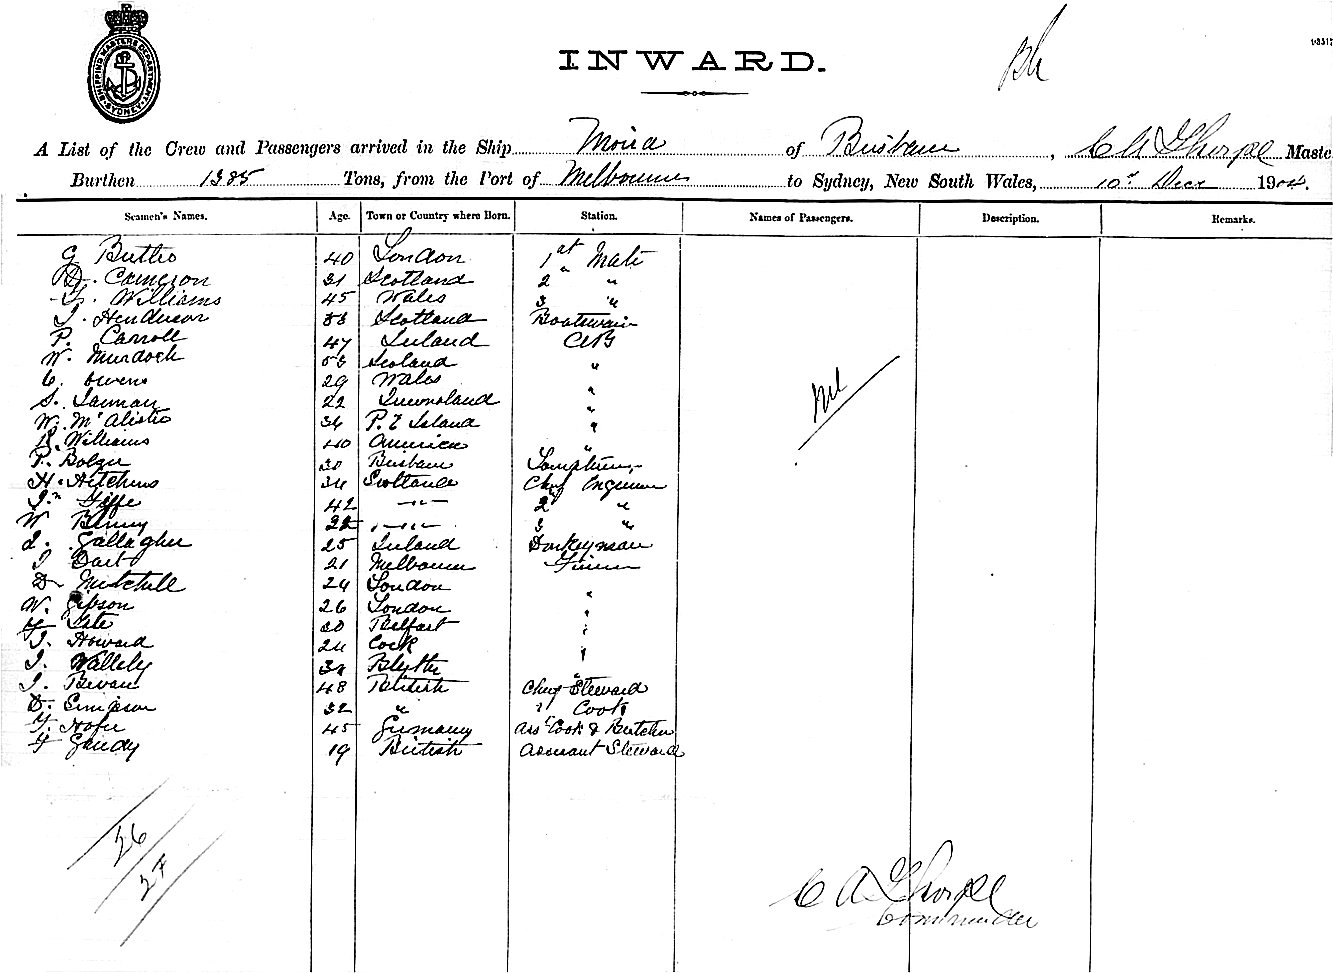 SHIPPING MASTERS DEPARTMENT SYDNEY
INWARD.
A List of the Crew and Passengers arrived in the Ship Moira of Brisbane, C A Thorpe Maste
Burthen 1385 Tons, from the Port of Melbourne to Sydney, New South Wales, 10th Decr 1904.
Seamen's Names. Age. Town or Country where Born. Station. Names of Passengers. Description. Remarks.
G Butler 40 London 1st Mate
D. Cameron 31 Scotland 2 " "
Williams 45 Wales 3 "
J. Henderson Scotland Boatswain
P. Carroll 47 Ireland AB
W. Murdoch Scotland "
C. Owens 29 Wales "
S. 22 Queensland "
W. McAlister 34 P. E Island "
R. Williams 40 America "
P. Bolger 30 Brisbane Lamptrimer
H. Hitchens 34 Scotland Chief Engineer
Jn 42 —"— 2nd "
W Binny 22 —"— 3 "
Gallagher 25 Ireland Donkeyman
J Dart 21 Melbourne Firemn
D Mitchell 24 London "
W. Gibson 26 London "
Tate 30 Belfast "
J. Howard 24 Cork "
J. Wallely Blyth "
J. Bevan 48 British Chief Steward
D. Simpson 32 " " Cook
F. Hofer 45 Germany Asst Cook & Butcher
F Gandy 19 British Assistant Steward
Nil
26
27
C A Thorpe
Commander